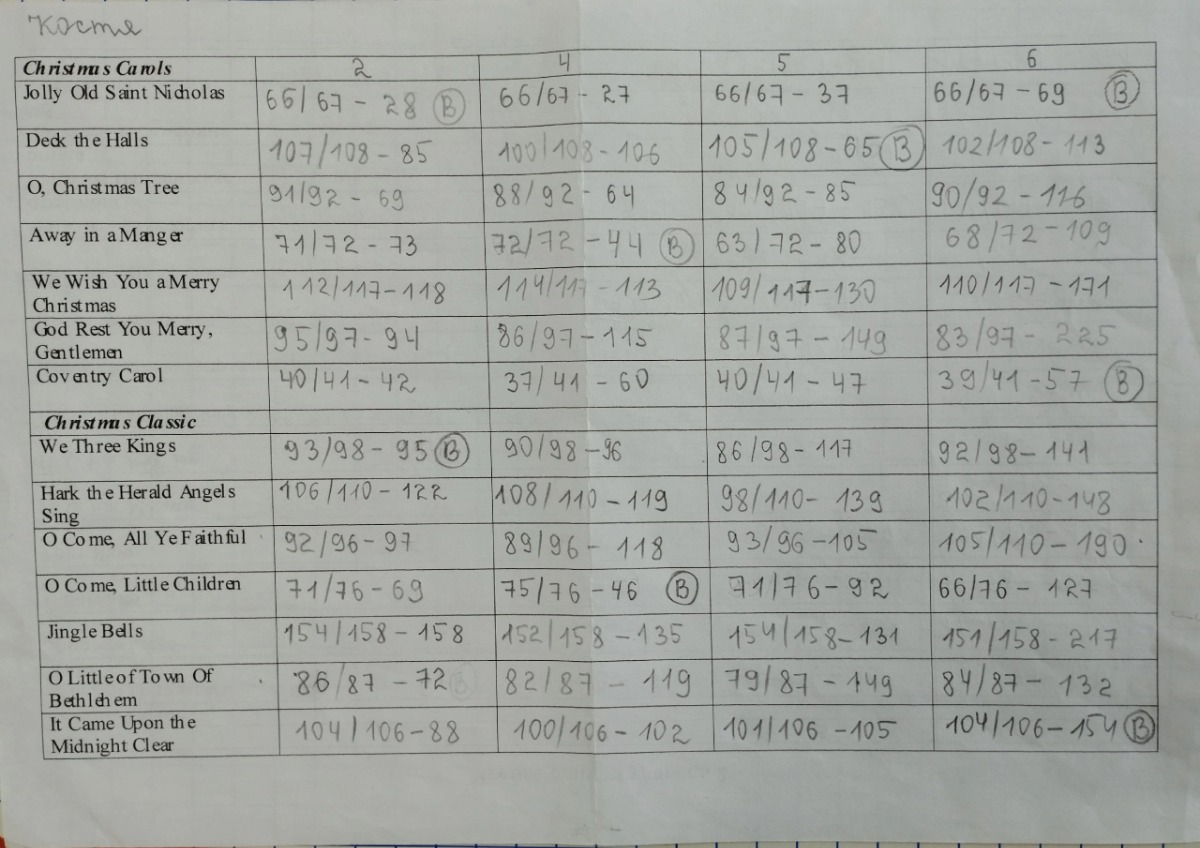 Косте
Christmas Carols 2 4 5 6
Jolly Old Saint Nicholas 66/67 - 28 (B) 66/67 - 27 66/67 - 37 66/67 - 69 (B)
Deck the Halls 107/108 - 85 100/108 - 106 105/108 - 65 (B) 102/108 - 113
O, Christmas Tree 91/92 - 69 88/92 - 64 84/92 - 85 90/92 - 116
Away in a Manger 71/72 - 73 72/72 - 44 (B) 63/72 - 80 68/72 - 109
We Wish You a Merry Christmas 112/117 - 118 114/117 - 113 109/117 - 130 110/117 - 171
God Rest You Merry, Gentlemen 95/97 - 94 86/97 - 115 87/97 - 149 83/97 - 225
Coventry Carol 40/41 - 42 37/41 - 60 40/41 - 47 39/41 - 57 (B)
Christmas Classic
We Three Kings 93/98 - 95 (B) 90/98 - 96 86/98 - 117 92/98 - 141
Hark the Herald Angels Sing 106/110 - 122 108/110 - 119 98/110 - 139 102/110 - 148
O Come, All Ye Faithful 92/96 - 97 89/96 - 118 93/96 - 105 105/110 - 190
O Come, Little Children 71/76 - 69 75/76 - 46 (B) 71/76 - 92 66/76 - 127
Jingle Bells 154/158 - 158 152/158 - 135 154/158 - 131 151/158 - 217
O Little of Town Of Bethlehem 86/87 - 72 82/87 - 119 79/87 - 149 84/87 - 132
It Came Upon the Midnight Clear 104/106 - 88 100/106 - 102 101/106 - 105 104/106 - 154 (B)